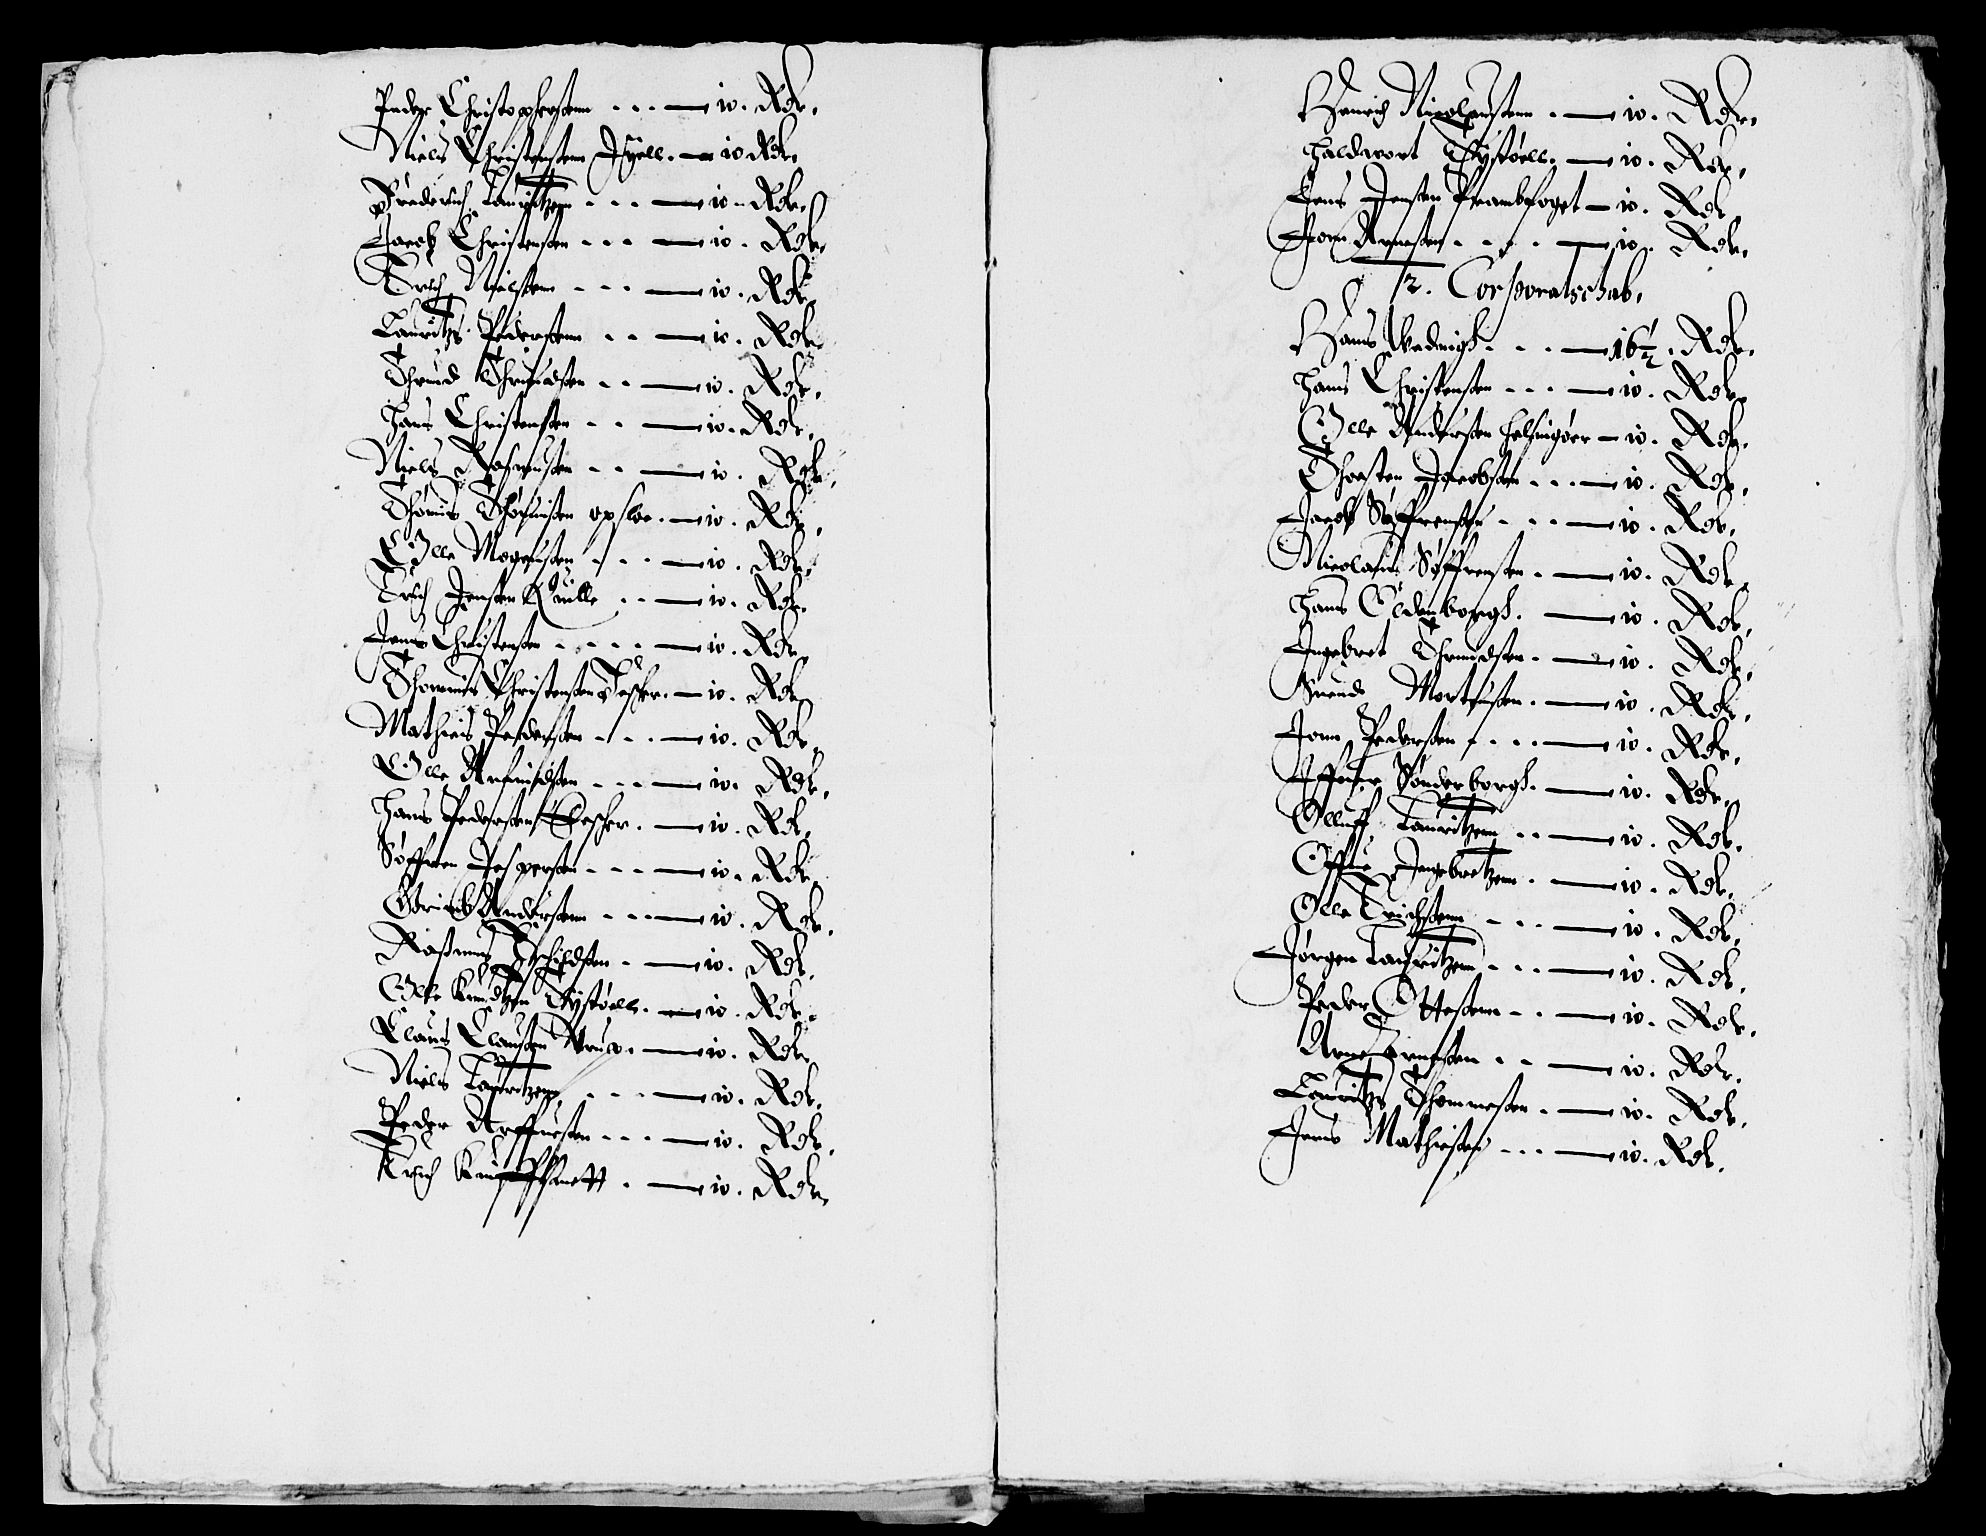 Peder Christophersenn . . . — 10. Rdr.
Niels Christensenn — 10 Rdr.
Frederich Lauritzenn . . . — 10 . Rdr.
Jacob Christensen . . . — 10 . Rdr.
Erich Nielsen . . . — 10 . Rdr.
Lauritz Pedersenn . . — 10 . Rdr.
Thrund Thrundsen . . — 10 . Rdr.
Hans Christensen . . — 10 . Rdr.
Niels Rasmusen . . — 10 . Rdr.
Thønnis Thønnisen opsloe . — 10 . Rdr.
Olle Mogensen . . . — 10 . Rdr.
Erich Jensen Quille . . — 10 . Rdr.
Jens Christensen . . . . . — 10 . Rdr.
Thommis Christensen . — 10 . Rdr.
Mathies Pedersen . . . — 10 . Rdr.
Olle Arfuidsen . . . — 10 . Rdr.
Hans Pedersen . — 10 . Rdr.
Søffren Jespersen . . . — 10 . Rdr.
Andersenn . . . — 10 . Rdr.
Rasmus Eschildsen . — 10 . Rdr.
Olle Knudtzen Tystøell . — 10 . Rdr.
Claus Clausen — 10 . Rdr.
Niels Lauritzenn . . . — 10 . Rdr.
Peder Arffuesen . . . — 10 . Rdr.
Erich . — 10 . Rdr.
Henrich Nicolausenn . — 10 . Rdr.
Haldword Tystøell . — 10 . Rdr.
Jens Jensen Prambfoget — 10 . Rdr.
Jonn Arnesen . . . . — 10 . Rdr.
12. Corporalschab,
Hans . . . — 16½ . Rdr.
Hans Christensen . . . — 10 . Rdr.
Olle Andersen Helsingøer — 10 . Rdr.
Thorsten Jacobsen . . . — 10 . Rdr.
Jacob Søffrensen . . . — 10 . Rdr.
Nicolaus Søffrensen . — 10 . Rdr.
Hans Oldenborgh . — 10 . Rdr.
Ingebret Thrundsen . — 10 . Rdr.
Suend Mortensen . — 10 . Rdr.
Jonn Pedersen . . . . — 10 . Rdr.
Iffuer Sønderborgh . — 10 . Rdr.
Olluff Lauritzenn . . — 10 . Rdr.
Ingebretzenn . — 10 . Rdr.
Olle Erichsenn . . . — 10 . Rdr.
Jørgen Lauritzenn . . . — 10 . Rdr.
Peder Ottesenn . . — 10 . Rdr.
Arne Arnesen . . — 10 . Rdr.
Lauritz Thommesen . — 10 . Rdr.
Jens Mathiesen . . . — 10 . Rdr.